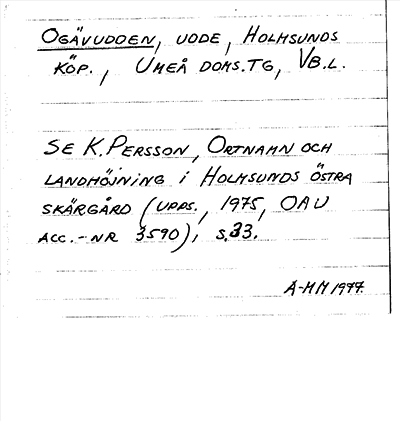 OGÄVUDDEN, UDDE, HOLMSUNDS
KÖP., UMEÅ DOMS.TG, VB.L.
SE K. PERSSON, ORTNAMN OCH
LANDHÖJNING I HOLMSUNDS ÖSTRA
SKÄRGÅRD (UPPS., 1975, OAU
ACC.-NR 3590), S.33.
A-MM 1977